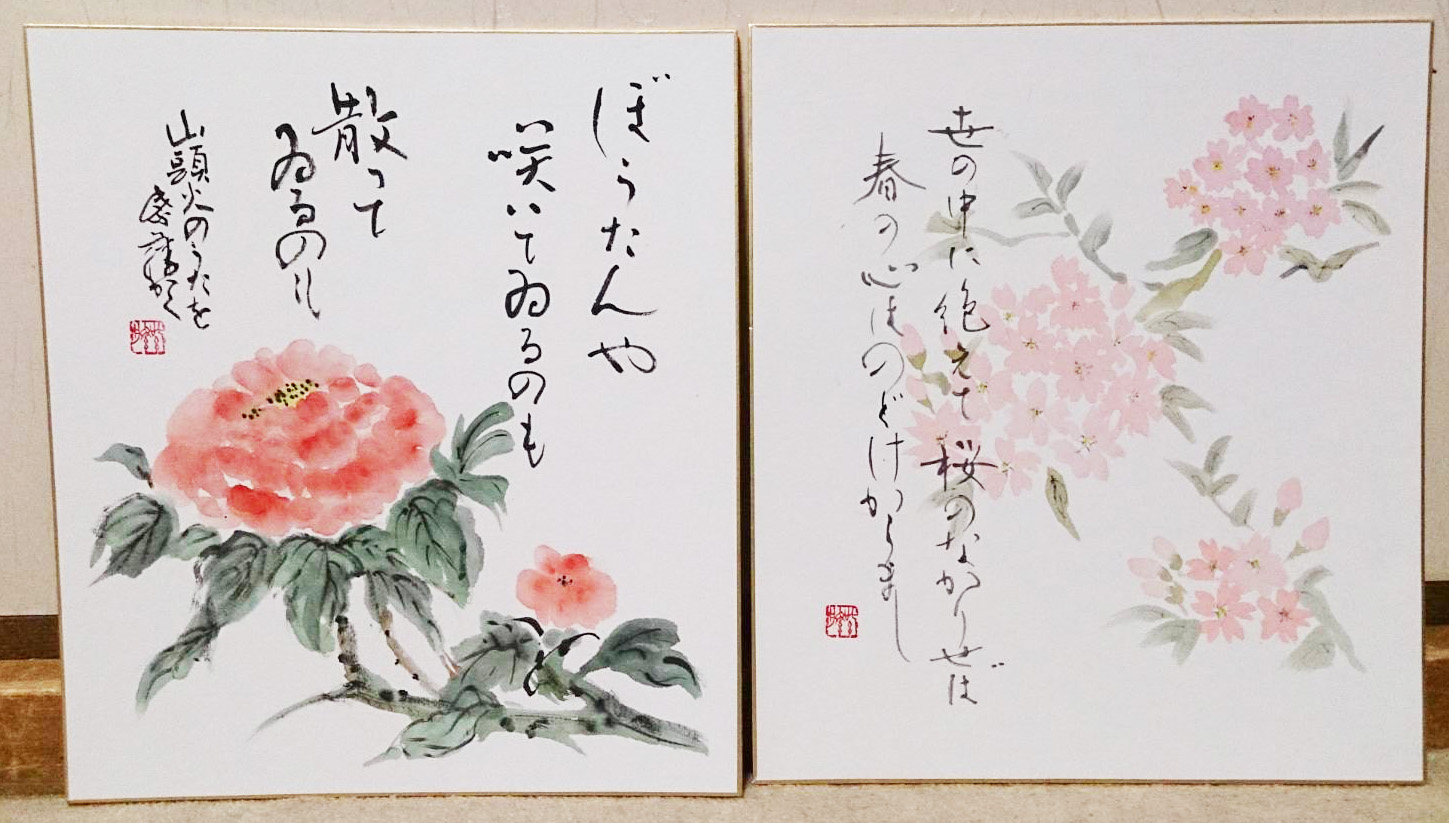 ぼうたんや
咲いてゐるのも
散って
ゐるのも
山頭火のうたを
かく
世の中に絶えて桜のなかりせば
春の心はのどけからまし